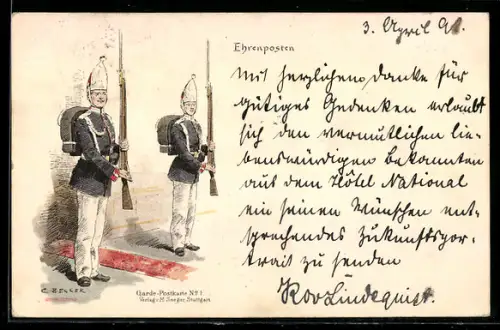 3. April 98.
Ehrenposten
Mit herzlichem danke für
gütiges Gedenken erlaubt
sich den vermutlichen lie-
benswürdigen Bekannten
aus dem Hôtel National
ein seinen Wünschen ent-
sprechendes Zukunftspor-
trait zu senden
Rov Lindequist.
C. BECKER
Garde-Postkarte No 1
Verlag v. H. Seeger, Stuttgart